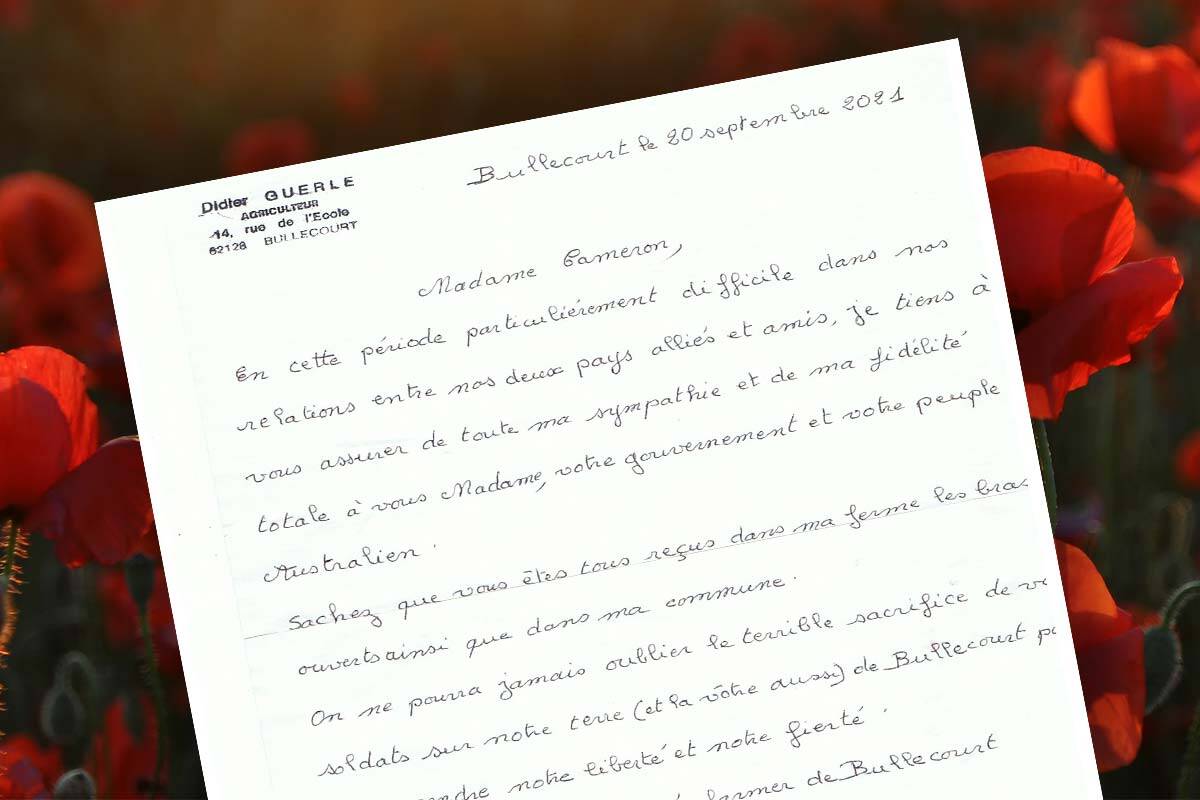 Didier GUERLE
AGRICULTEUR
14, rue de l'Ecole
62128 BULLECOURT
Bullecourt le 20 septembre 2021
Madame Cameron,
En cette période particulièrement difficile dans nos
relations entre nos deux pays alliés et amis, je tiens à
vous assurer de toute ma sympathie et de ma fidélité
totale à vous Madame, votre gouvernement et votre peuple
Australien.
Sachez que vous êtes tous reçus dans ma ferme les bras
ouverts ainsi que dans ma commune.
On ne pourra jamais oublier le terrible sacrifice de
soldats sur notre terre (et la vôtre aussi) de Bullecourt
notre liberté et notre fierté.
de Bullecourt